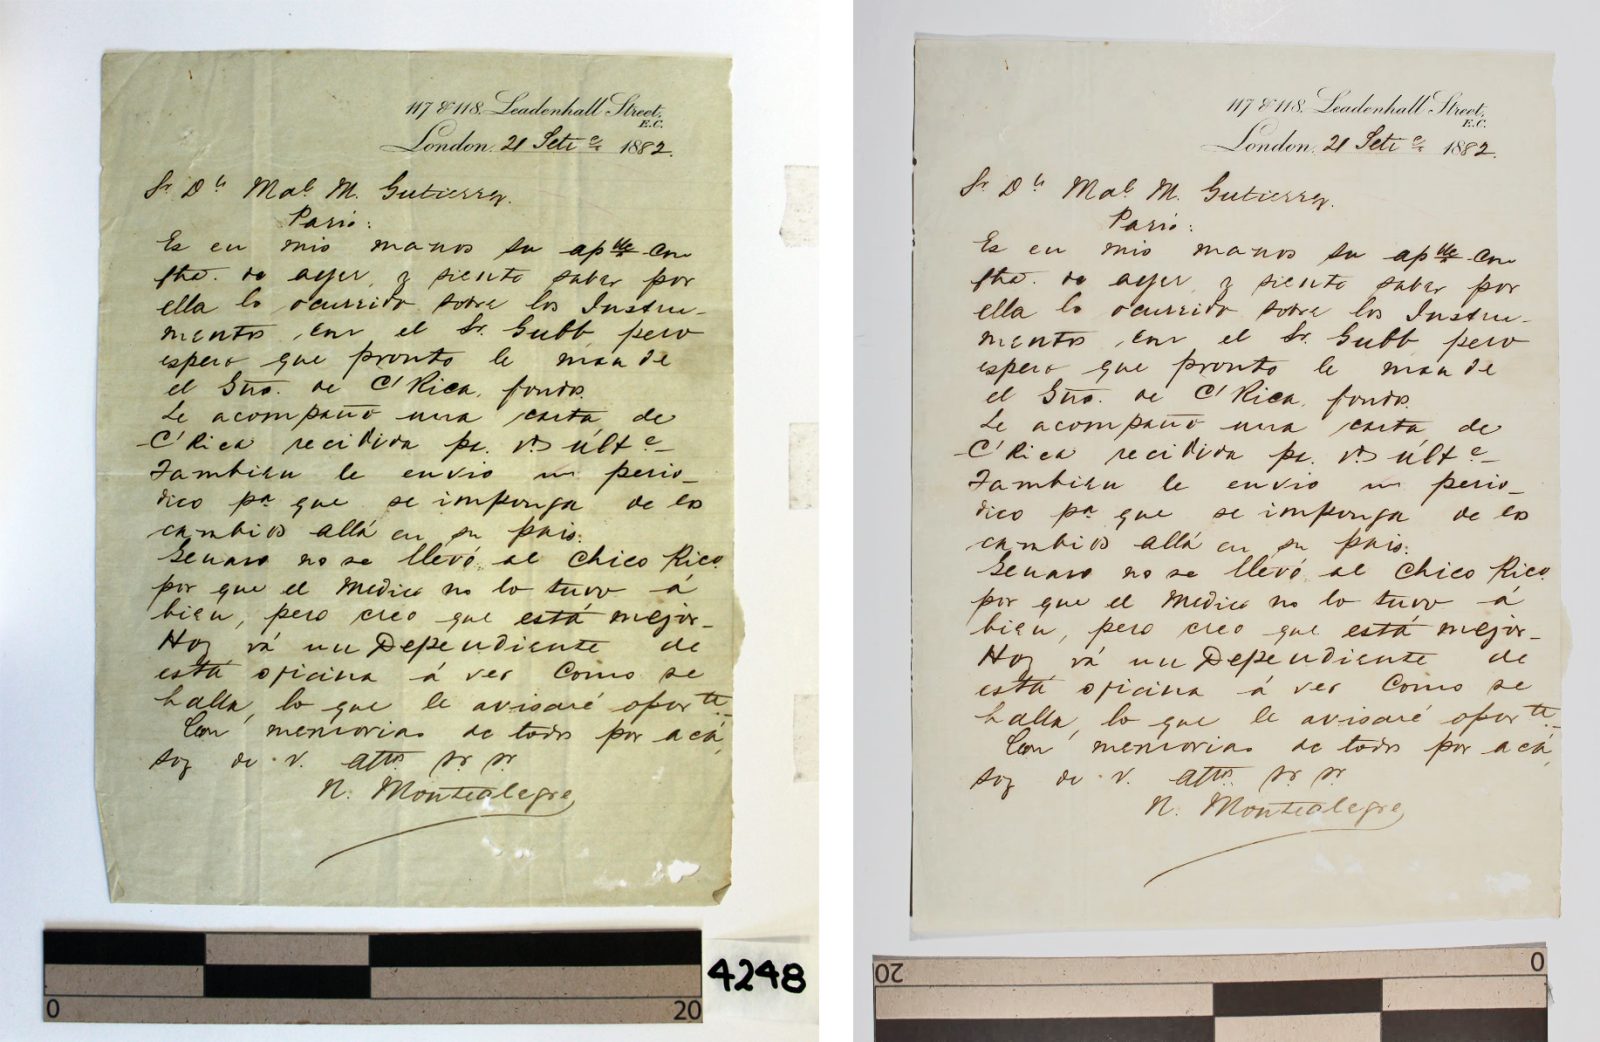 117 & 118, Leadenhall Street,
E.C.
London, 21 Sete 1882.
Sr. Dn Mal M. Gutierrez.
Paris:
Es en mis manos su apble con
fha. de ayer, y siento saber por
ella lo ocurrido sobre los Instru-
mentos, con el Sr. Gubb pero
espero que pronto le mande
el Gno. de C' Rica, fondos.
Le acompaño una carta de
C' Rica recibida pr. últe
Tambien le envio un perio-
dico pa que se imponga de los
cambios allá en su pais.
Genaro no se llevó al Chico Rico
por que el Medico no lo tuvo á
bien, pero creo que está mejor-
Hoy vá un Dependiente de
esta oficina á ver como se
halla, lo que le avisaré oporte-
Con memorias de todos por acá,
soy de v. atto. sr. sr.
N. Montealegre
0
20
4248
117 & 118, Leadenhall Street,
E.C.
London, 21 Sete 1882.
Sr. Dn Mal M. Gutierrez.
Paris:
Es en mis manos su apble con
fha. de ayer, y siento saber por
ella lo ocurrido sobre los Instru-
mentos, con el Sr. Gubb pero
espero que pronto le mande
el Gno. de C' Rica, fondos.
Le acompaño una carta de
C' Rica recibida pr. últe
Tambien le envio un perio-
dico pa que se imponga de los
cambios allá en su pais.
Genaro no se llevó al Chico Rico
por que el Medico no lo tuvo á
bien, pero creo que está mejor-
Hoy vá un Dependiente de
esta oficina á ver como se
halla, lo que le avisaré oporte-
Con memorias de todos por acá,
soy de v. atto. sr. sr.
N. Montealegre
20
0